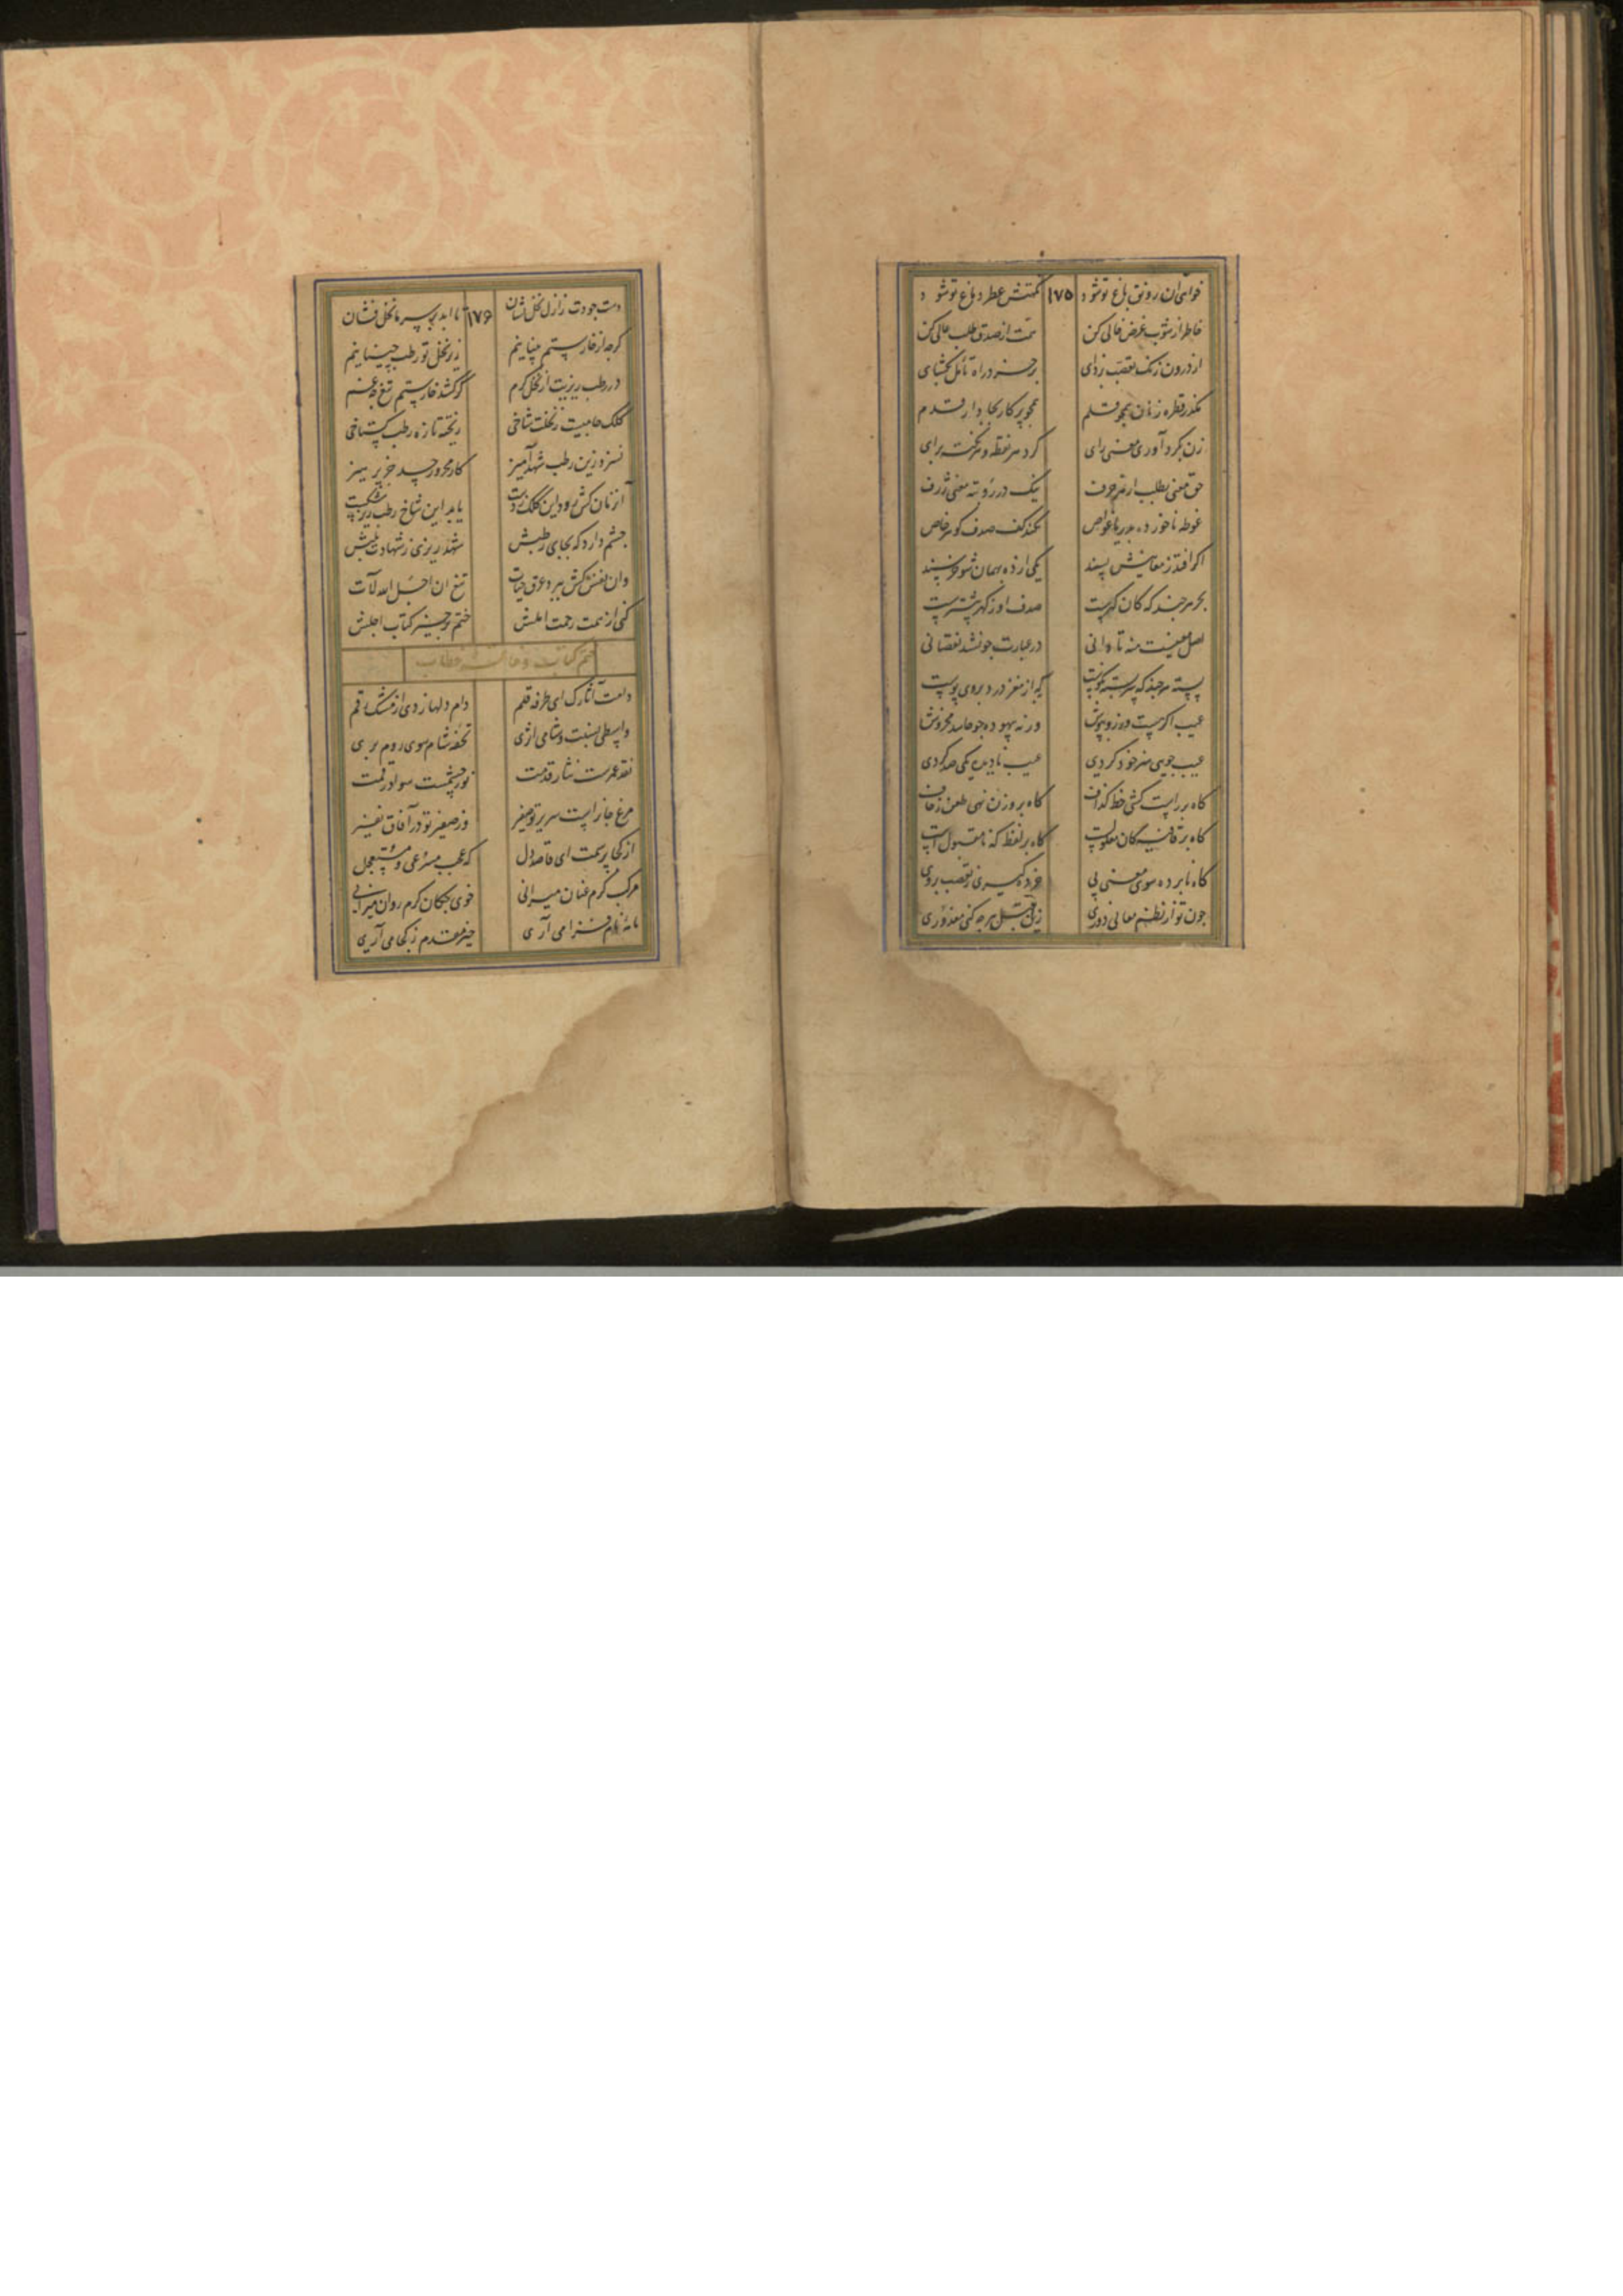 خواهی ان رونق باغ تو شود ۱۷۵ نکهتش عطر دماغ تو شود
خاطر از شوب غرض خالی کن همت از صدق طلب عالی کن
از درون زنک تعصب بزدای بر خرد راه تأمل بکشای
مکذر قطره زنان همچو قلم همچو پرکار بجا دار قدم
زن بکرد آوری معنی رای کرد هر نقطه و هر نکته برای
حق معنی بطلب از هر حرف در رو بته معنی ژرف
غوطه ناخورده بدریا غواص نکند کف صدف کوهر خاص
اکر افتد ز معانیش پسند یکی از ده بهمان شو خرسند
بحر هر چند که کان کهرست صدف او ز کهر بیشترست
اصل معنیست منه تا دانی در عبارت چو فتد نقصانی
پسته هر چند که سربسته نکوست که از مغز درد بر وی پوست
عیب اکر هست ورز و بپوش ورنه بیهوده چو حاسد مخروش
عیب جویی هنر خود کردی عیب نادیده یکی صد کردی
کاه بر راست کشی خط کذاف کاه بر وزن نهی طعن زحاف
کاه بر قافیه کان معلولست کاه بر لفظ که نامقبولست
کاه نابرده سوی معنی پی خرده کیری ز تعصب بر وی
چون تو از نظم معانی دوری زین قبل هرچه کنی معذوری
دست جودت ز ازل نخل نشان ۱۷۶ تا ابد بر سر ما نخل فشان
کرچه از خار ستم زیر نخل تو رطب چینانیم
در رطب ریزیت از نخل کرم کر کشد خار ستم تیغ چه غم
کلک جامیست ز نخلت شاخی ریخته تازه رطب کستاخی
نسزد زین رطب شهدآمیز کار محرور بجز پرهیز
آن زمان کش رود این کلک ز دست یابد این شاخ رطب ریز شکست
چشم دارد که بجای رطبش شهد ریزی ز شهادت بلبش
وان نفس کش ببرد عرق حیات تیغ ان اجل الله لآت
کنی از همت رحمت املش ختم بر خیر کتاب اجلش
ختم کتاب و خاتمه خطاب
دامت آثارک ای طرفه قلم دام دلها زدی از مشک رقم
واسطی نسبت و شامی اثری تحفه شام سوی روم بری
نقد عمرست نثار قدمت نور چشمست سواد رقمت
مرغ جانراست سریر تو صفیر وز صفیر تو در آفاق نفیر
از کجا میرسی ای قاصد دل که عجب مسرعی و مستعجل
مرکب کرم عنان میرانی خوی چکان کرم روان میرانی
نامه نام فزا می آری خیر مقدم ز کجا می آری